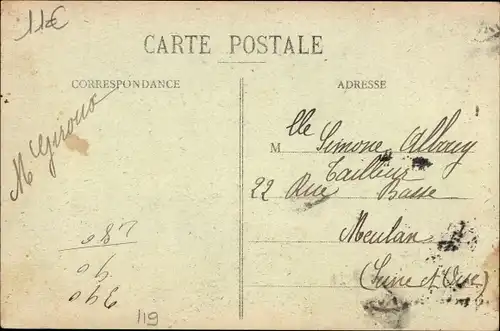 11€
CARTE POSTALE
CORRESPONDANCE
ADRESSE
Mlle Simone Albany
Tailleur
22 Rue Basse
Meulan
(Seine et Oise)
M Girona
119